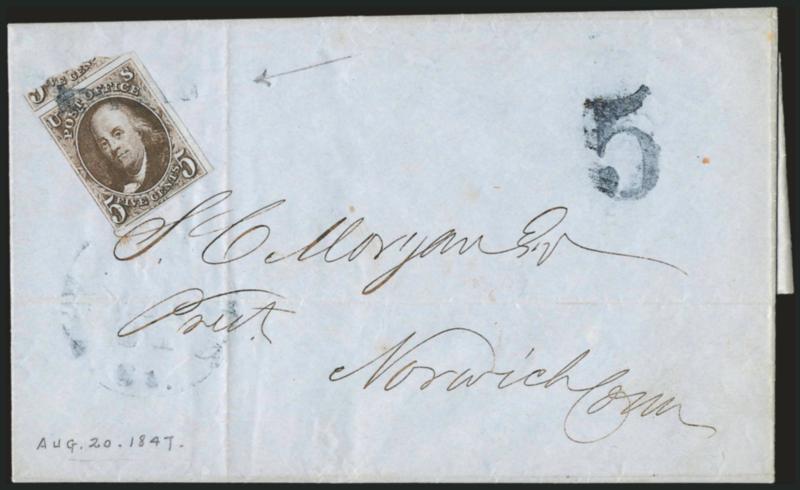 FIVE CEN
U S
POST OFFICE
5 FIVE CENTS 5
5
S. C. Morgan Esq
Prest.
Norwich Conn
AUG. 20. 1847.